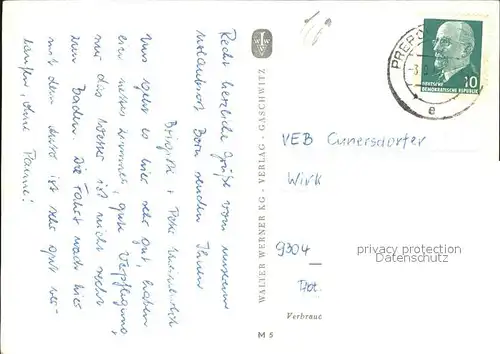 Recht herzliche Grüße von unserem
Urlaubsort Born senden Ihnen
Brigitte + Peter
Uns geht es hier sehr gut, haben
ein nettes Zimmer, gute Verpflegung,
nur das Wasser ist nicht recht
zum Baden. Die Fahrt nach hier
mit dem Auto ist sehr gut ver-
laufen, ohne Panne!
WALTER WERNER KG - VERLAG - GASCHWITZ
M 5
PREROW
e
10
DEUTSCHE
DEMOKRATISCHE REPUBLIK
VEB Cunersdorfer
Wirk
9304
Verbrauc
privacy protection
Datenschutz